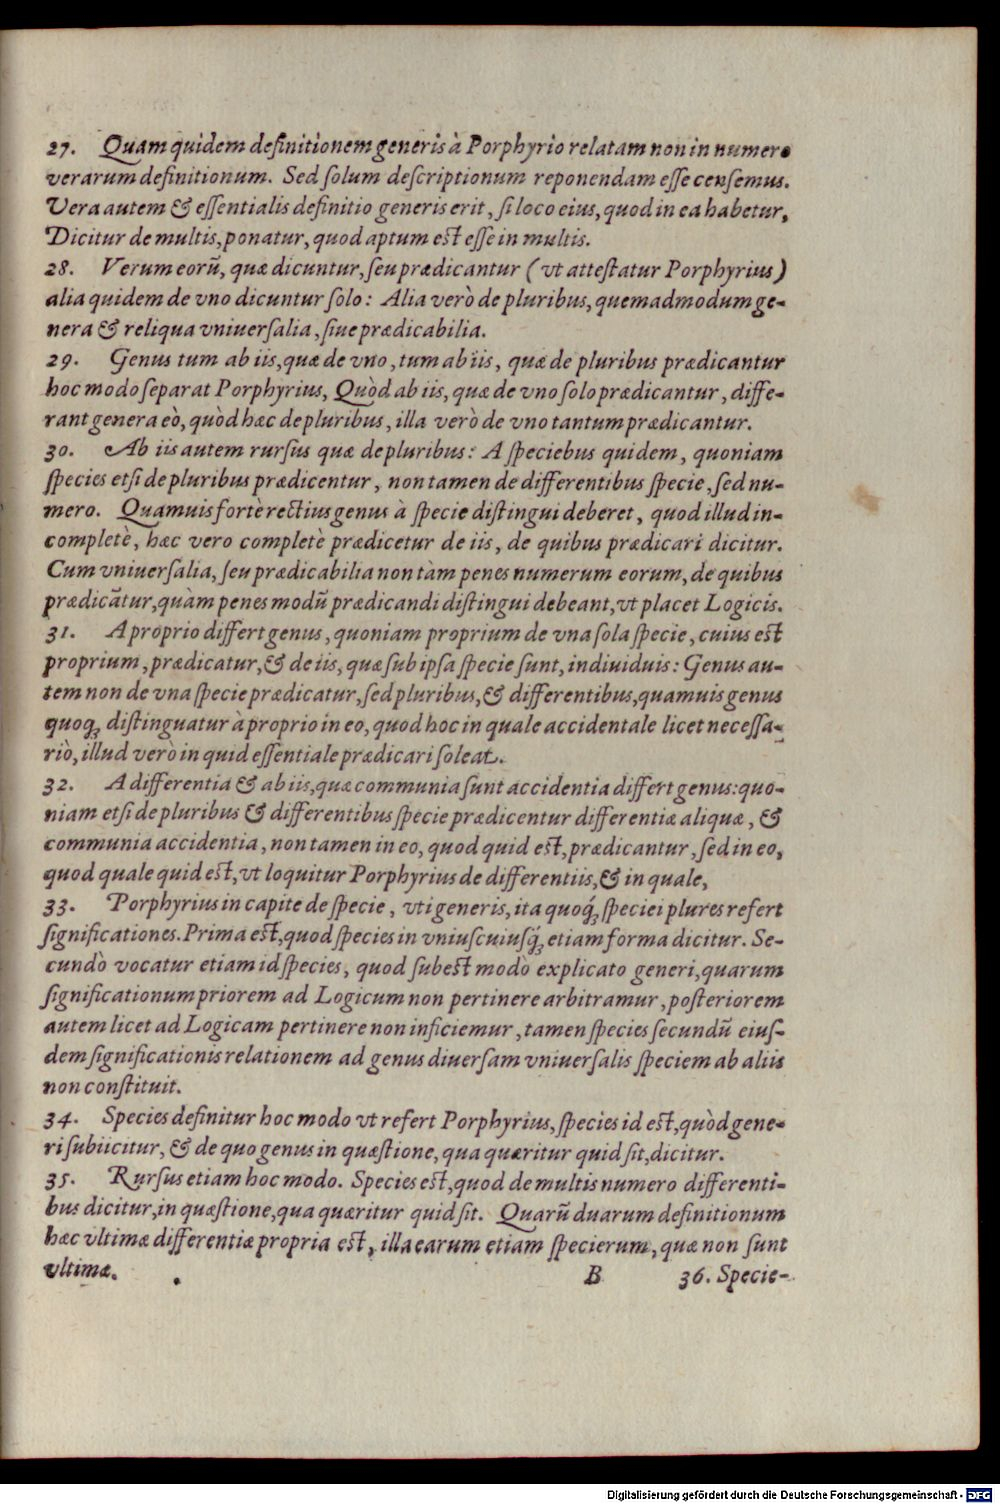 27. Quam quidem definitionem generis à Porphyrio relatam non in numero
verarum definitionum. Sed ſolum deſcriptionum reponendam eſſe cenſemus.
Vera autem & eſſentialis definitio generis erit, ſi loco eius, quod in ea habetur,
Dicitur de multis, ponatur, quod aptum eſt eſſe in multis.
28. Verum eorũ, quæ dicuntur, ſeu prædicantur (vt atteſtatur Porphyrius)
alia quidem de vno dicuntur ſolo: Alia verò de pluribus, quemadmodum ge-
nera & reliqua vniuerſalia, ſiue prædicabilia.
29. Genus tum ab iis, quæ de vno, tum ab iis, quæ de pluribus prædicantur
hoc modo ſeparat Porphyrius, Quòd ab iis, quæ de vno ſolo prædicantur, diffe-
rant genera eò, quòd hæc de pluribus, illa verò de vno tantum prædicantur.
30. Ab iis autem rurſius quæ de pluribus: A ſpeciebus quidem, quoniam
ſpecies etſi de pluribus prædicentur, non tamen de differentibus ſpecie, ſed nu-
mero. Quamuis fortè rectius genus à ſpecie diſtingui deberet, quod illud in-
completè, hæc vero completè prædicetur de iis, de quibus prædicari dicitur.
Cum vniuerſalia, ſeu prædicabilia non tàm penes numerum eorum, de quibus
prædicãtur, quàm penes modũ prædicandi diſtingui debeant, vt placet Logicis.
31. A proprio differt genus, quoniam proprium de vna ſola ſpecie, cuius eſt
proprium, prædicatur, & de iis, quæ ſub ipſa ſpecie ſunt, indiuiduis: Genus au-
tem non de vna ſpecie prædicatur, ſed pluribus, & differentibus, quamuis genus
quoq; diſtinguatur à proprio in eo, quod hoc in quale accidentale licet neceſſa-
riò, illud verò in quid eſſentiale prædicari ſoleat.
32. A differentia & ab iis, quæ communia ſunt accidentia differt genus: quo-
niam etſi de pluribus & differentibus ſpecie prædicentur differentiæ aliquæ, &
communia accidentia, non tamen in eo, quod quid eſt, prædicantur, ſed in eo,
quod quale quid eſt, vt loquitur Porphyrius de differentiis, & in quale,
33. Porphyrius in capite de ſpecie, vti generis, ita quoq́; ſpeciei plures refert
ſignificationes. Prima eſt, quod ſpecies in vniuſcuiuſq́; etiam forma dicitur. Se-
cundò vocatur etiam id ſpecies, quod ſubeſt modò explicato generi, quarum
ſignificationum priorem ad Logicum non pertinere arbitramur, poſteriorem
autem licet ad Logicam pertinere non inficiemur, tamen ſpecies ſecundũ eiuſ-
dem ſignificationis relationem ad genus diuerſam vniuerſalis ſpeciem ab aliis
non conſtituit.
34. Species definitur hoc modo vt refert Porphyrius, ſpecies id eſt, quòd gene-
ri ſubiicitur, & de quo genus in quæſtione, qua quæritur quid ſit, dicitur.
35. Rurſus etiam hoc modo. Species eſt, quod de multis numero differenti-
bus dicitur, in quæſtione, qua quæritur quid ſit. Quarũ duarum definitionum
hæc vltimæ differentiæ propria eſt, illa earum etiam ſpecierum, quæ non ſunt
vltimæ.
B 36. Specie-
Digitalisierung gefördert durch die Deutsche Forschungsgemeinschaft - DFG